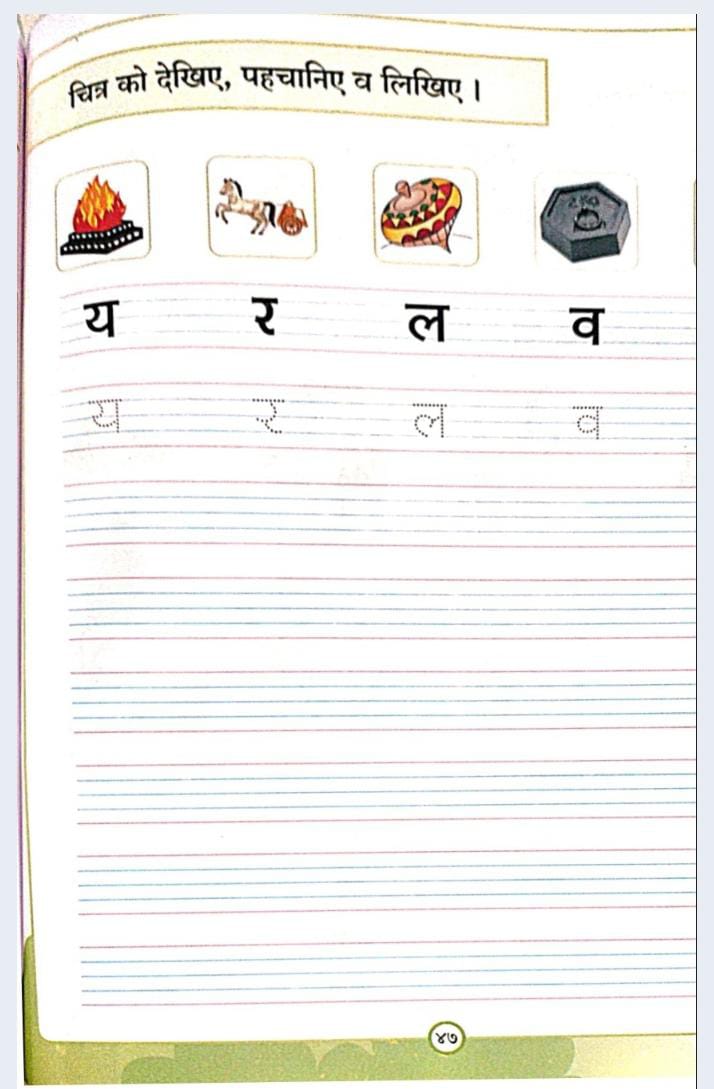 चित्र को देखिए, पहचानिए व लिखिए ।
य र ल व
य र ल व
४७